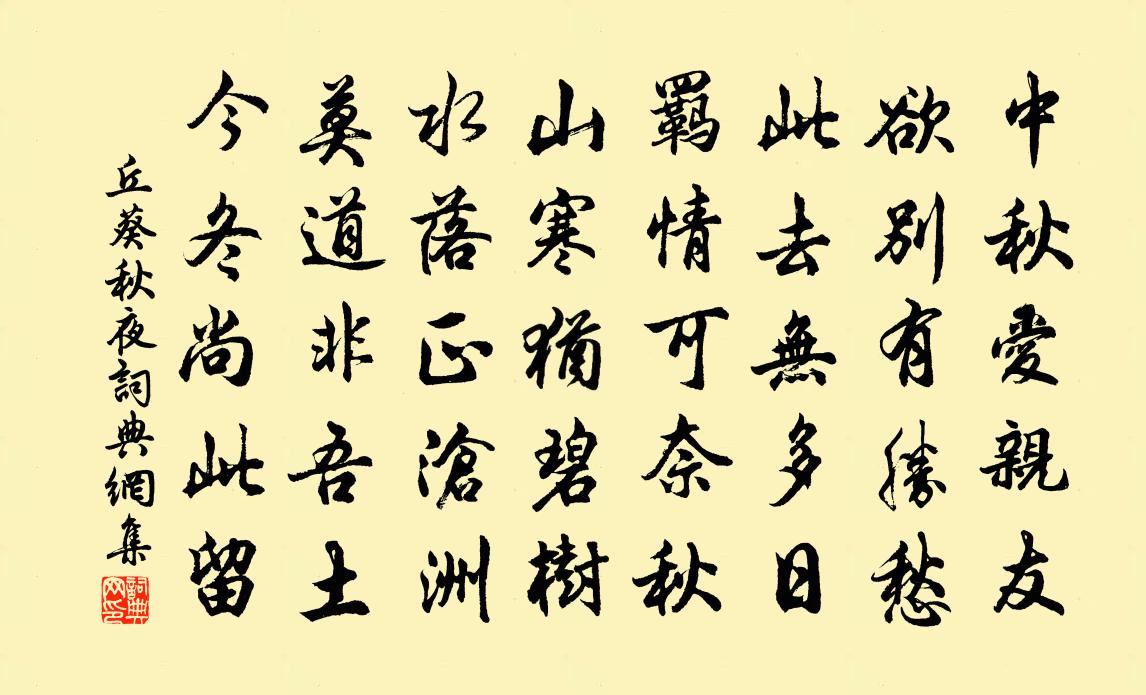 中秋愛親友
欲別有勝愁
此去無多日
羈情可奈秋
山寒猶碧樹
水落正滄洲
莫道非吾土
今冬尚此留
丘葵秋夜詞典網集
詞典网印